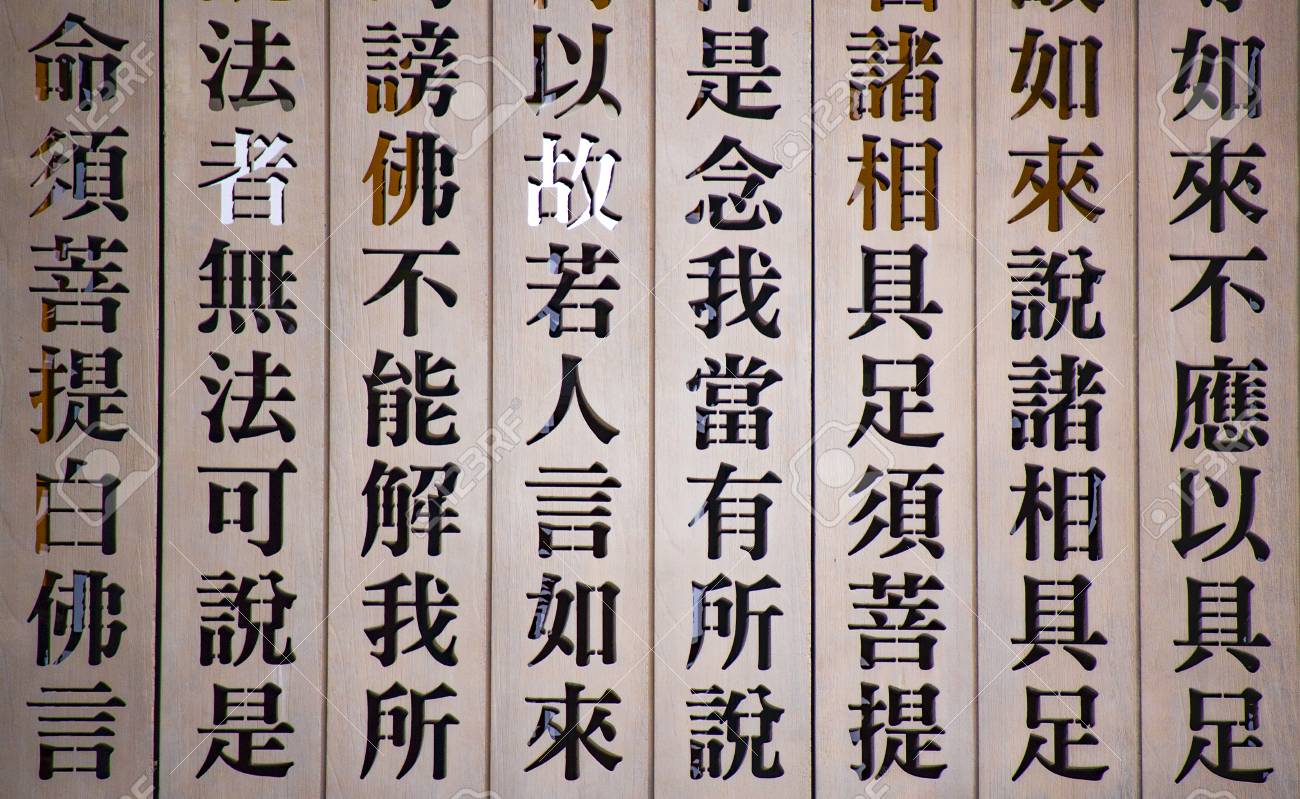 如來不應以具足
如來說諸相具足
諸相具足須菩提
是念我當有所說
以故若人言如來
謗佛不能解我所
法者無法可說是
命須菩提白佛言
123RF